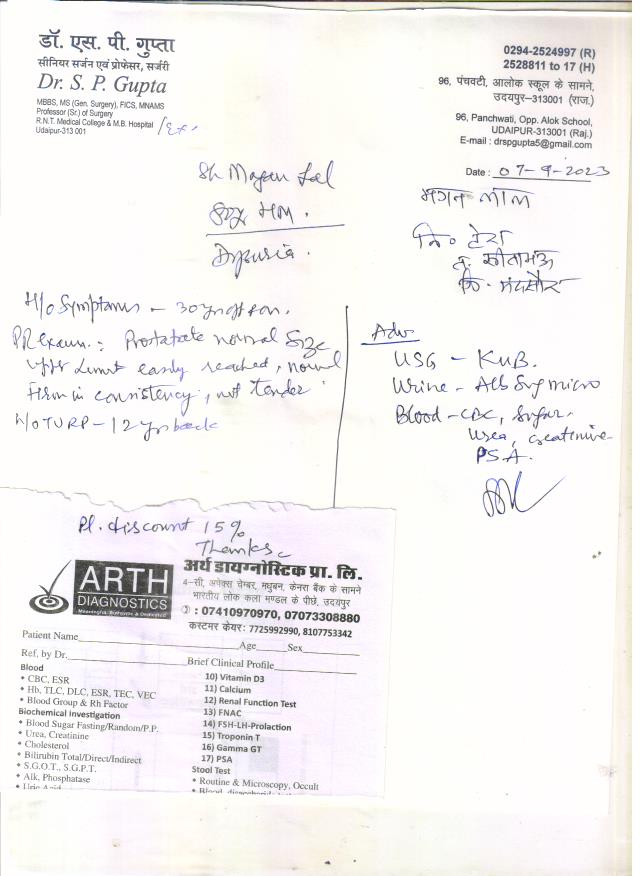 डॉ. एस. पी. गुप्ता
सीनियर सर्जन एवं प्रोफेसर, सर्जरी
Dr. S. P. Gupta
MBBS, MS (Gen. Surgery), FICS, MNAMS
Professor (Sr.) of Surgery
R.N.T. Medical College & M.B. Hospital
Udaipur-313 001
0294-2524997 (R)
2528811 to 17 (H)
96, पंचवटी, आलोक स्कूल के सामने,
उदयपुर–313001 (राज.)
96, Panchwati, Opp. Alok School,
UDAIPUR-313001 (Raj.)
E-mail : drspgupta5@gmail.com
Date : 07-9-2023
Sh Magan Lal
Dysuria.
मगन लाल
H/o Symptoms –
PR exam.: Prostate normal size
upper limit easily reached, normal
Firm in consistency, not tender
H/o TURP – 12 yrs back
Adv
USG – KUB.
Urine – Alb Sug micro
Blood – CBC, Sugar.
Urea, creatinine
PSA.
Pl. discount 15%
Thanks
ARTH
DIAGNOSTICS
अर्थ डायग्नोस्टिक प्रा. लि.
4–सी, अपेक्स चेम्बर, मधुबन, केनरा बैंक के सामने
भारतीय लोक कला मण्डल के पीछे, उदयपुर
: 07410970970, 07073308880
कस्टमर केयर: 7725992990, 8107753342
Patient Name Age Sex
Ref, by Dr. Brief Clinical Profile
Blood
• CBC, ESR
• Hb, TLC, DLC, ESR, TEC, VEC
• Blood Group & Rh Factor
Biochemical Investigation
• Blood Sugar Fasting/Random/P.P.
• Urea, Creatinine
• Cholesterol
• Bilirubin Total/Direct/Indirect
• S.G.O.T., S.G.P.T.
• Alk, Phosphatase
• Uric Acid
10) Vitamin D3
11) Calcium
12) Renal Function Test
13) FNAC
14) FSH-LH-Prolaction
15) Troponin T
16) Gamma GT
17) PSA
Stool Test
• Routine & Microscopy, Occult